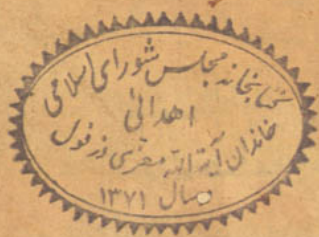 کتابخانه مجلس شورای اسلامی
اهدائی
خاندان آیة الله معزی دزفول
سال ۱۳۷۱